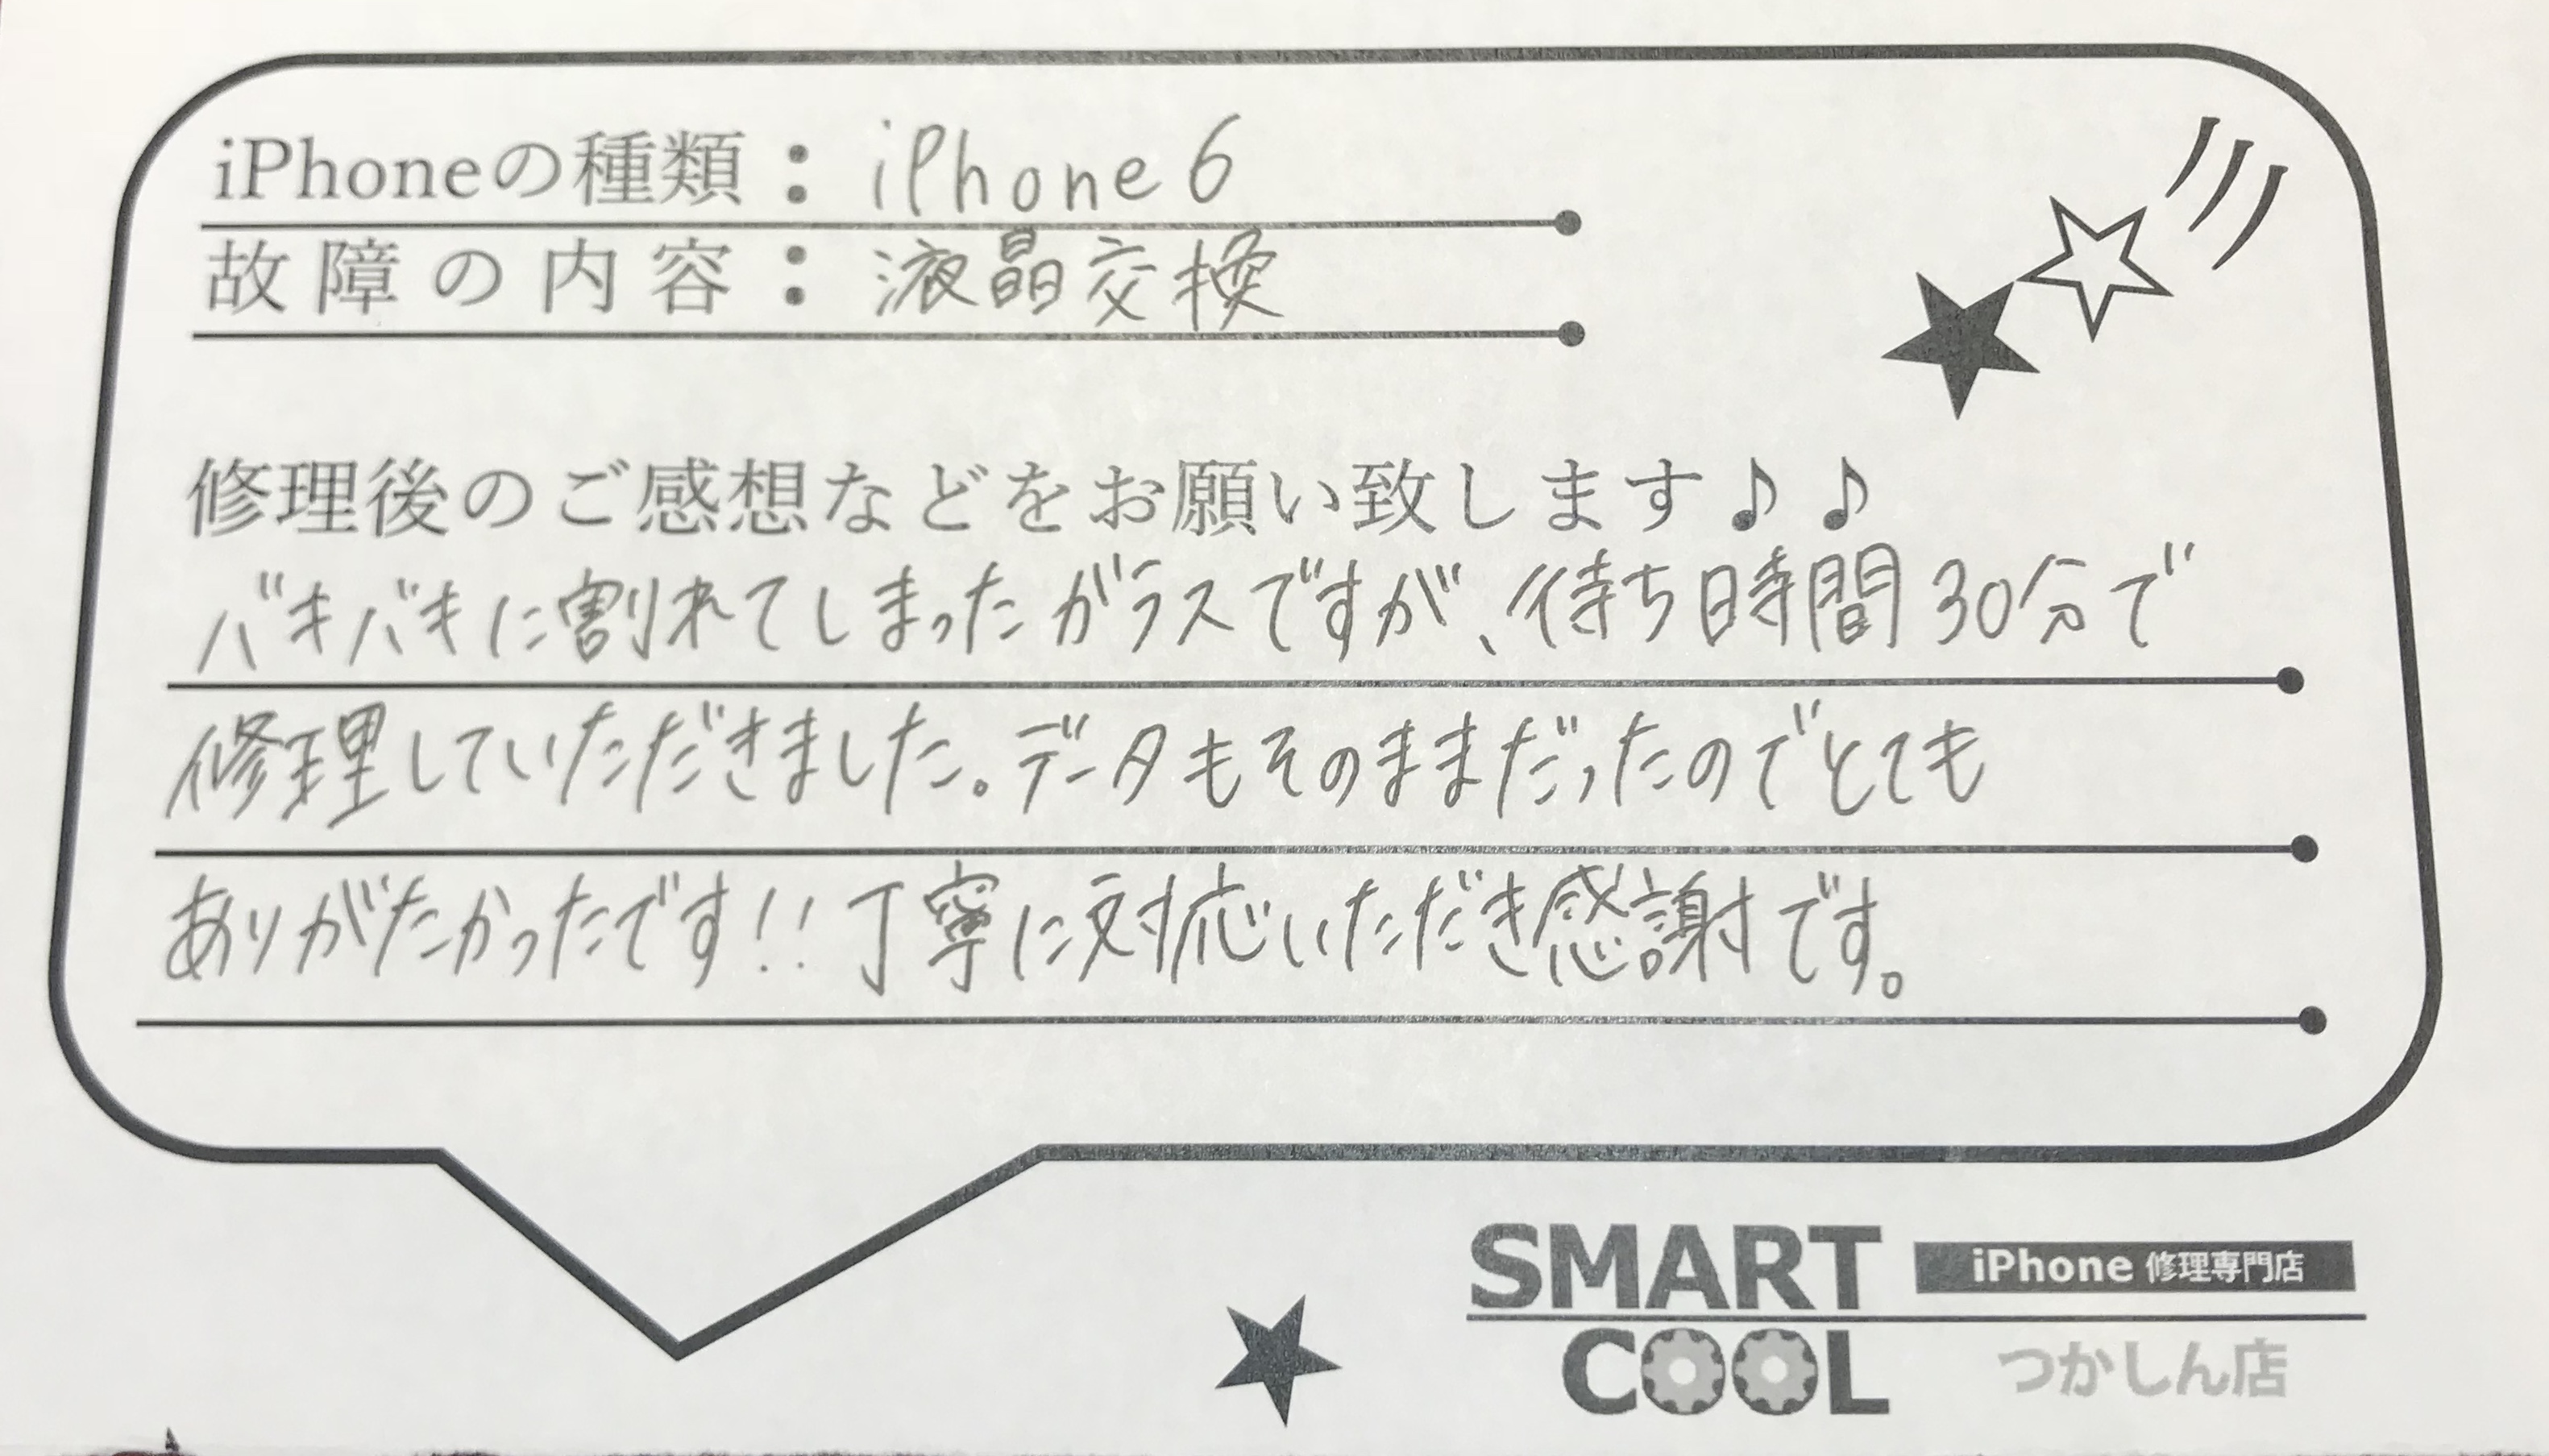 iPhoneの種類：iPhone6
故障の内容：液晶交換
修理後のご感想などをお願い致します♪♪
バキバキに割れてしまったガラスですが、待ち時間30分で
修理していただきました。データもそのままだったのでとても
ありがたかったです!!丁寧に対応いただき感謝です。
SMART iPhone 修理専門店
COOL つかしん店